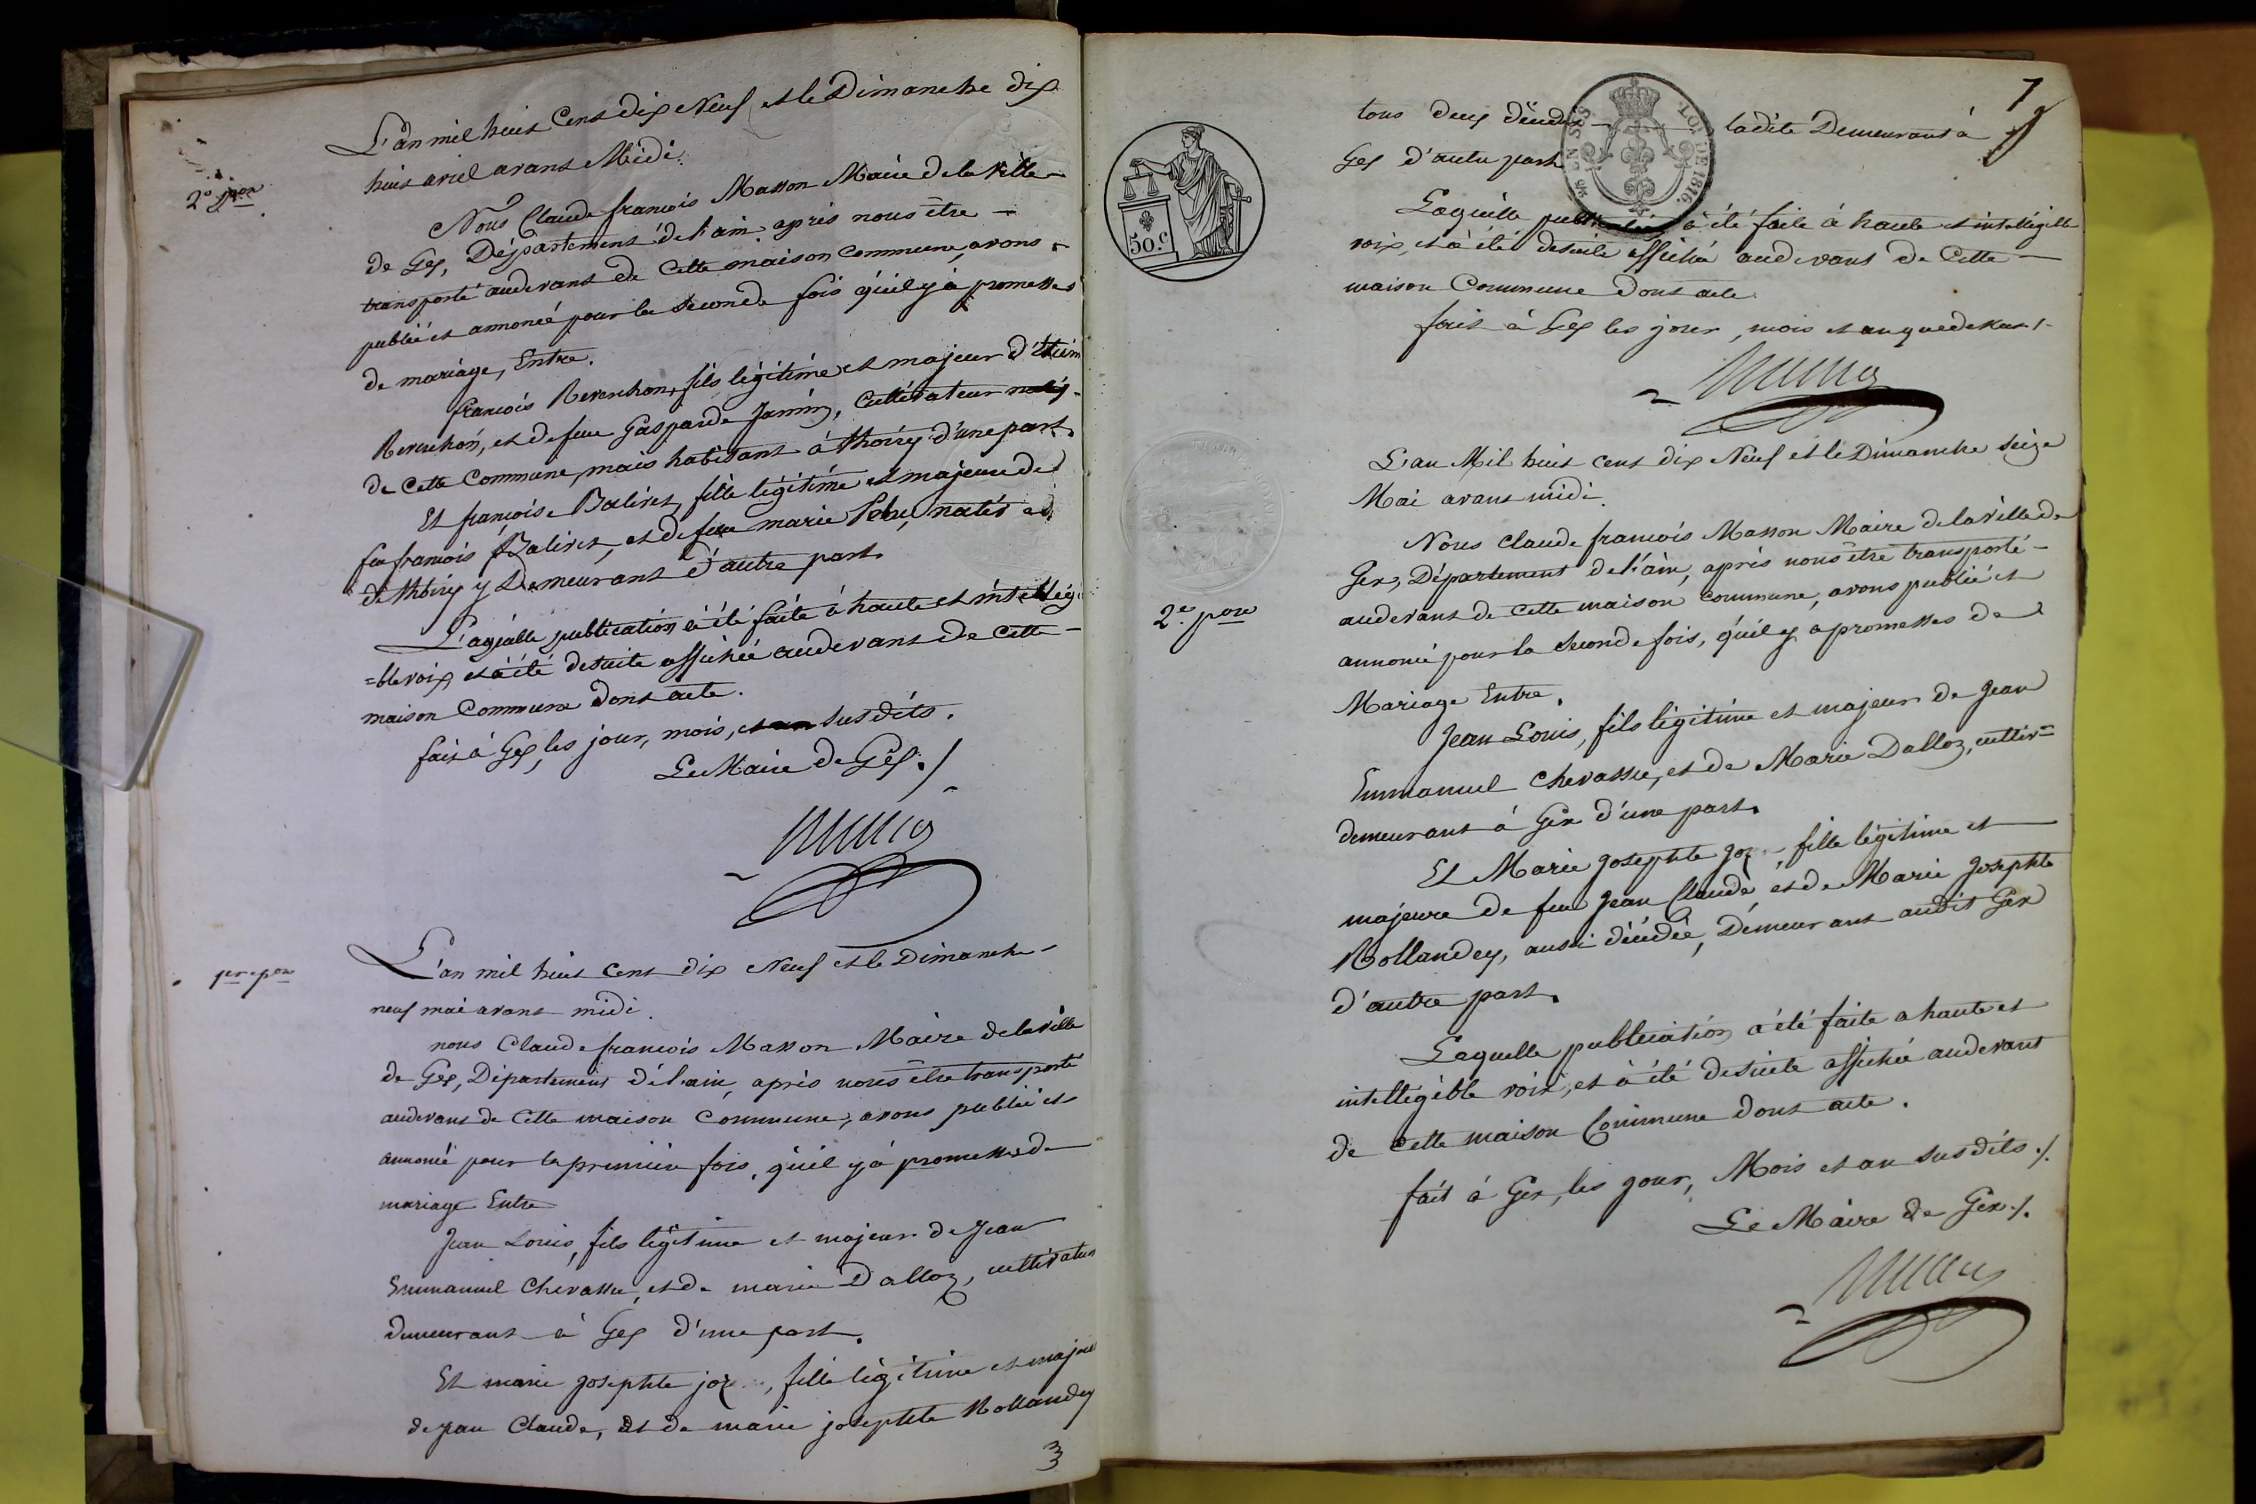 L'an mil huit Cent dix Neuf et le Dimanche dix
huit avril avant Midi.
2e pon
Nous Claude francois Masson Maire de la Ville
de Gex, Département de l'ain après nous être
transporté audevant de Cette maison commune, avons
publié et annoncé pour la seconde fois qu'il y à promesses
de mariage, Entre.
francois Reverchon, fils légitime et majeur d'
Reverchon, et de feue Gasparde Janin, Cultivateur natif
de Cette Commune, mais habitant à thoiry d'une part.
Et françoise Balivet, fille légitime et majeure de
feu francois Balivet, et de feue marie native
de thoiry y Demeurant d'autre part.
Laquelle publication à été faite à haute et intellégi
=ble voix et à été desuite affichée audevant de Cette
maison Commune dont acte.
fait à Gex, les jour, mois, et an susdits.
Le Maire de Gex ./
1er pon
L'an mil huit cent dix Neuf et le Dimanche
neuf mai avant midi.
nous Claude francois Masson Maire de la ville
de Gex, Département de l'ain, après nous être transporté
audevant de Cette maison Commune, avons publié et
annoncé pour la première fois, qu'il y à promesses de
mariage Entre
Jean Louis, fils légitime et majeur de Jean
Emmanuel Chevassu, et de marie Dalloz, cultivateur
demeurant à Gex d'une part.
Et marie josephte joz, fille légitime et majeure
de jean Claude, Et de marie josephte Rollandez
3
7
tous deux décédés ladite Demeurant à
Gex d'autre part
50.C
LOI DE 1816.
Laquelle publication à été faite à haute et intellegible
voix, et à été desuite affichée audevant de Cette
maison Commune dont acte.
fait à Gex les jour, mois et an que dessus ./.
L'an Mil huit cent dix Neuf et le Dimanche seize
Mai avant midi.
Nous Claude francois Masson Maire de la ville de
Gex, Département de l'ain, après nous être transporté
audevant de cette maison commune, avons publié et
2e pon
annoncé pour la seconde fois, qu'il y a promesses de
Mariage Entre.
Jean Louis, fils légitime et majeur de Jean
Emmanuel Chevassu, et de Marie Dalloz, cultiv=
demeurant à Gex d'une part.
Et Marie Josephte Joz, fille légitime et
majeure de feu Jean Claude, et de Marie Josephte
Rollandez, aussi décédée, Demeurant audit Gex
d'autre part.
Laquelle publication a été faite a haute et
intellégible voix, et à été desuite affichée audevant
de cette maison Commune dont acte.
fait à Gex, les jour, Mois et an susdits ./.
Le Maire de Gex ./.